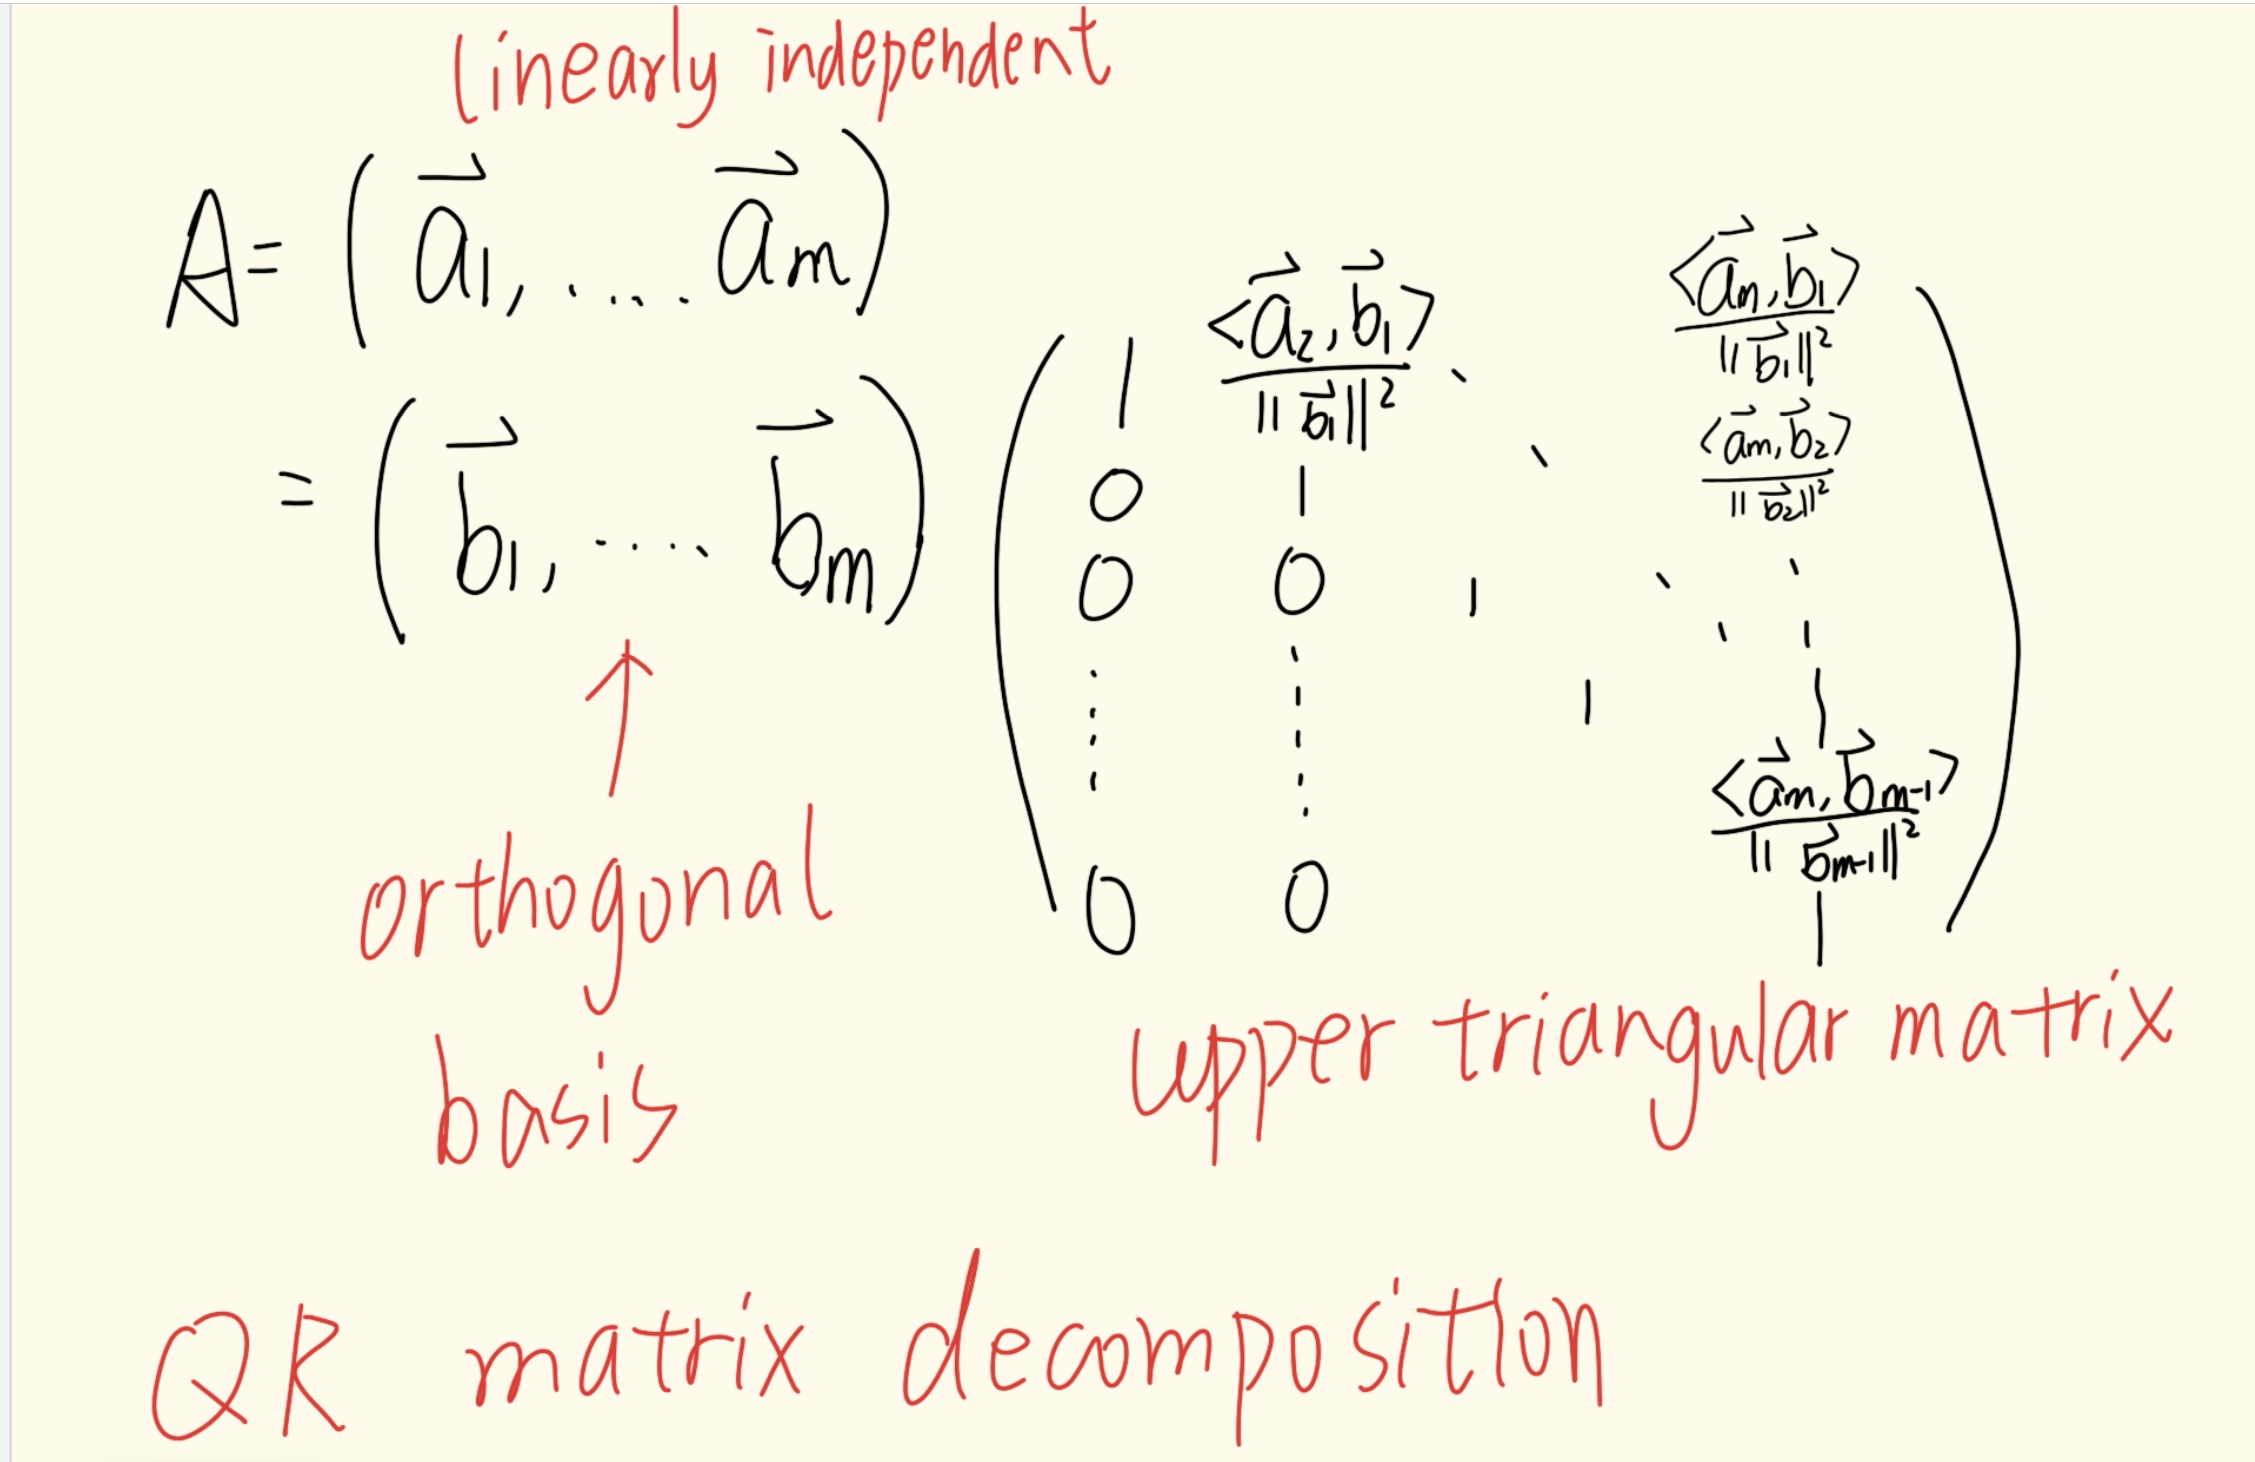 linearly independent
A = (a⃗₁, ..... a⃗ₘ)
= (b⃗₁, ..... b⃗ₘ) ( 1 <a⃗₂, b⃗₁> / ||b⃗₁||² ⋱ <a⃗ₘ, b⃗₁> / ||b⃗₁||²
0 1 ⋱ <a⃗ₘ, b⃗₂> / ||b⃗₂||²
0 0 1 ⋱ ⋮
⋮ ⋮ 1 <a⃗ₘ, b⃗ₘ₋₁> / ||b⃗ₘ₋₁||²
0 0 1 )
↑
orthogonal
basis
upper triangular matrix
QR matrix decomposition